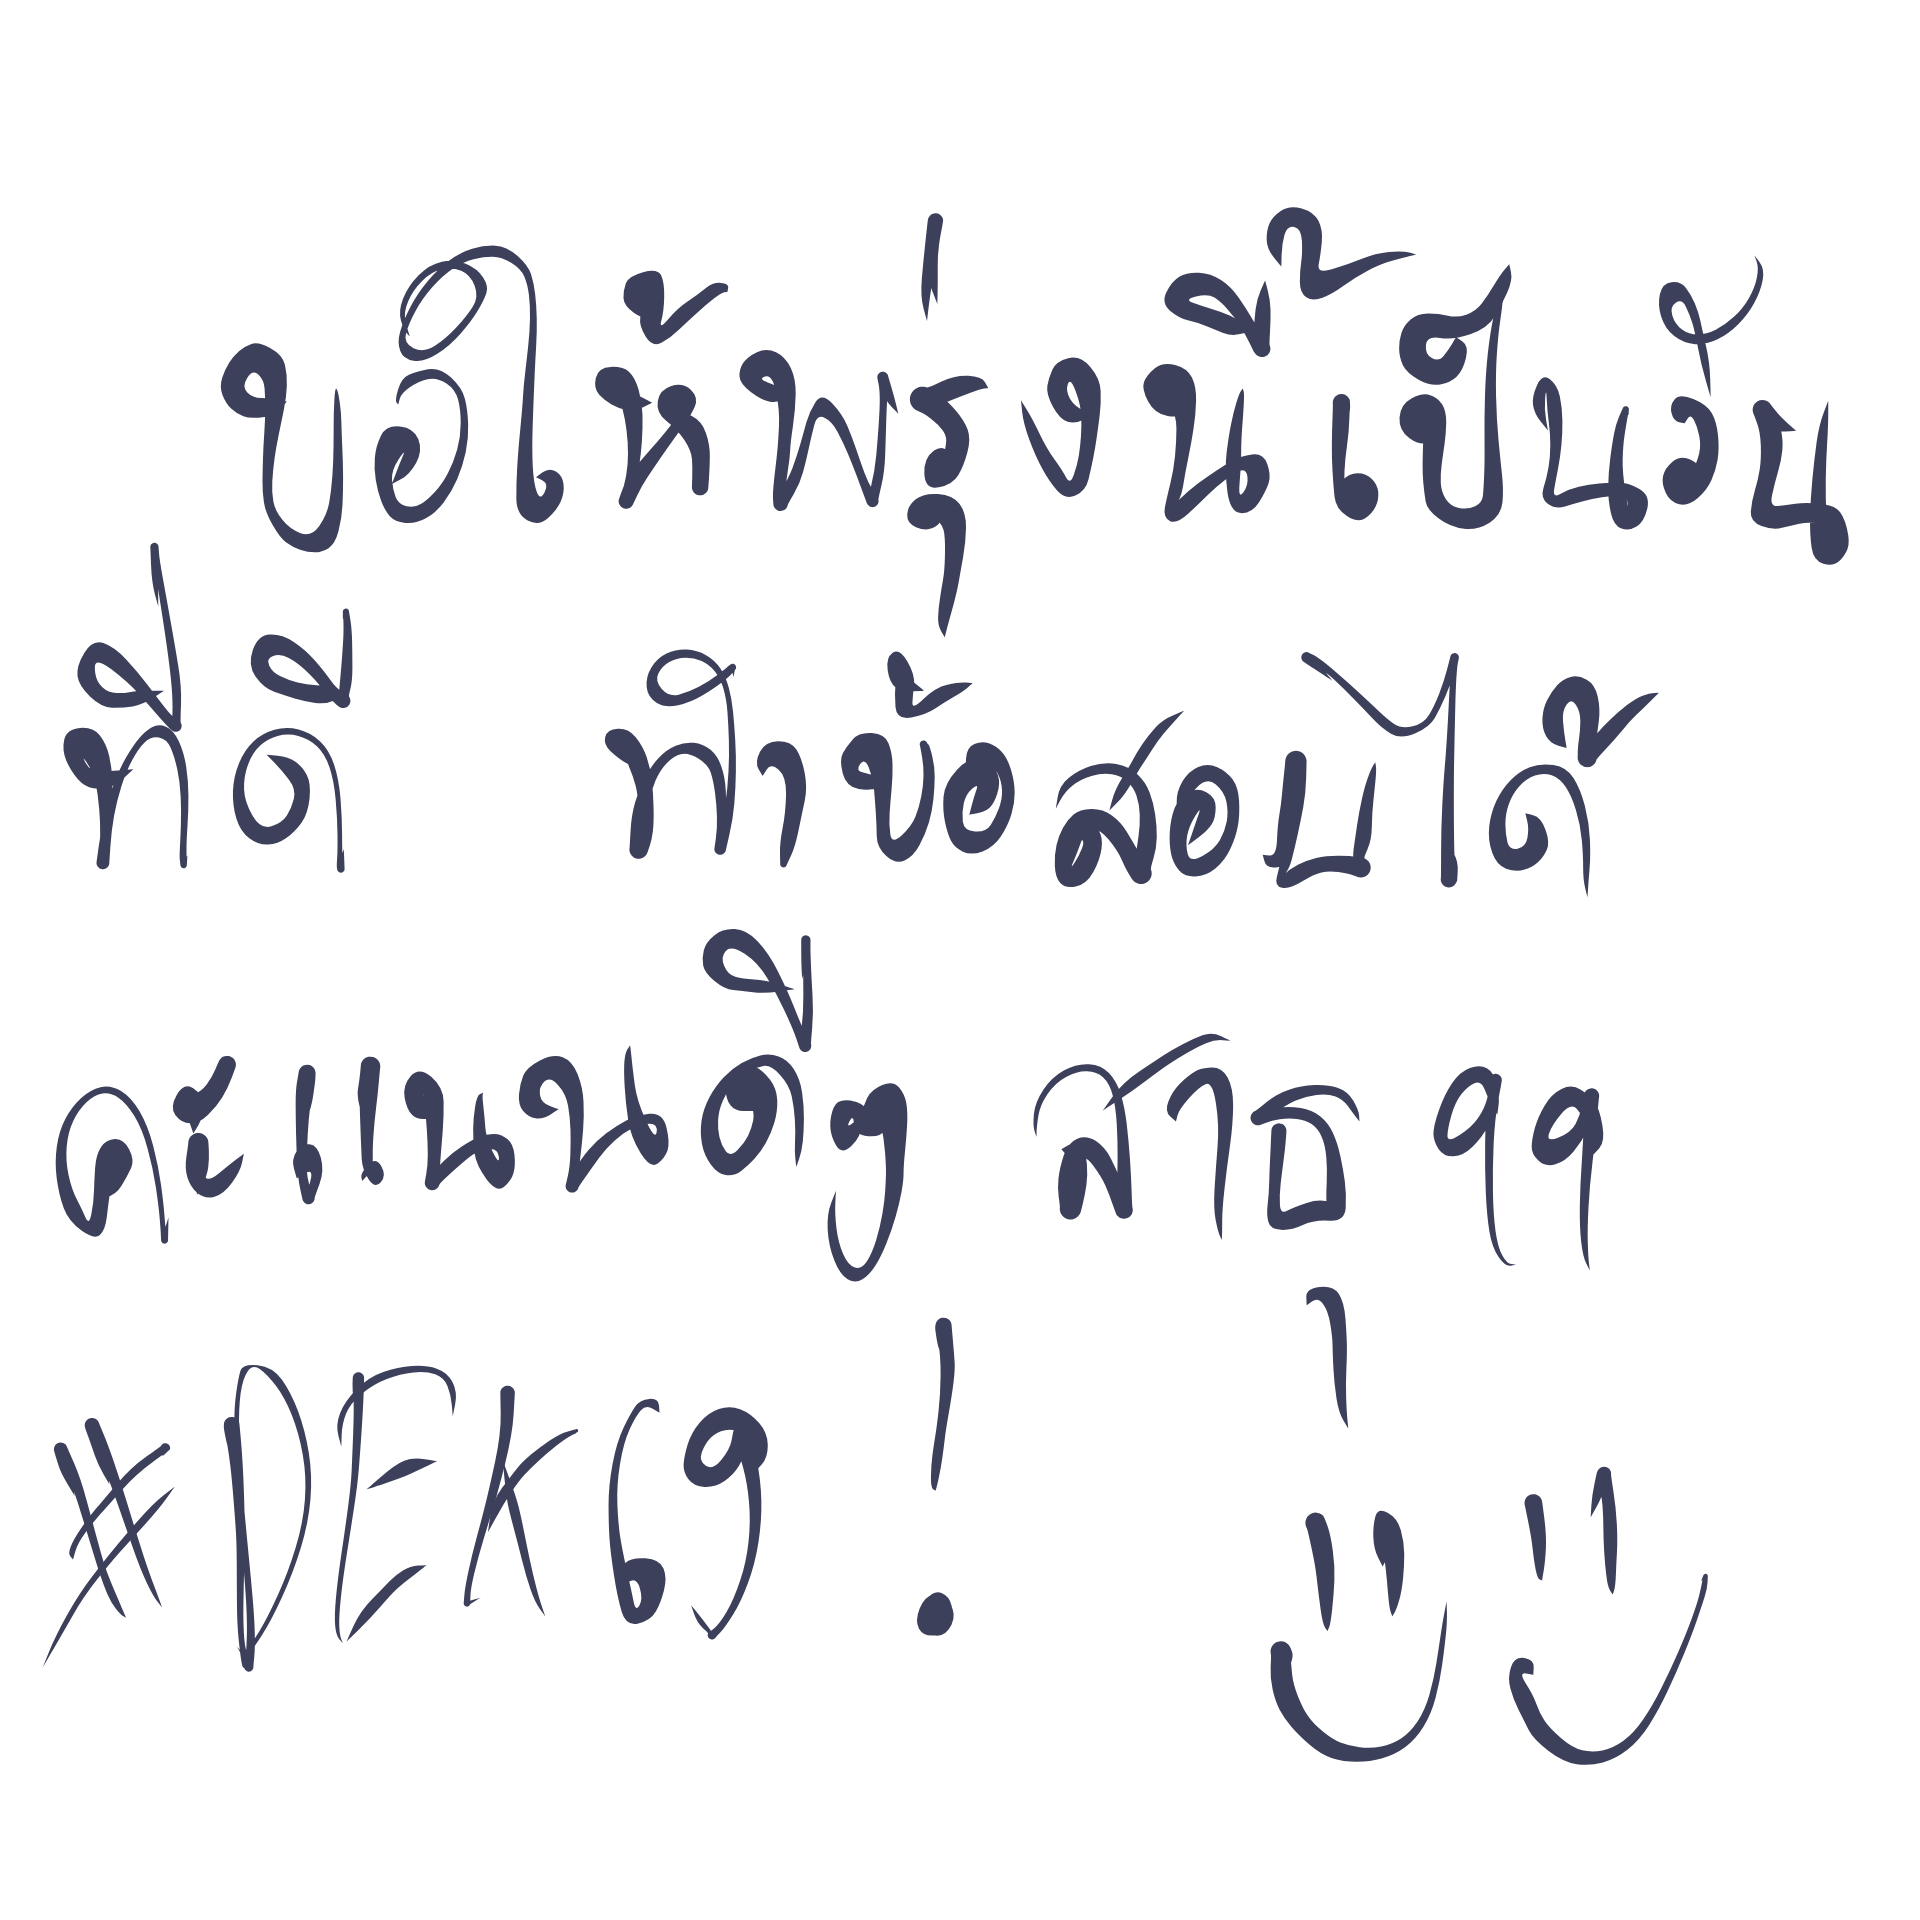 ขอให้พรุ่งนี้เป็นวัน
ที่ดี ทำข้อสอบได้
คะแนนดีๆ สาธุ ๆๆ
#DEK69 !